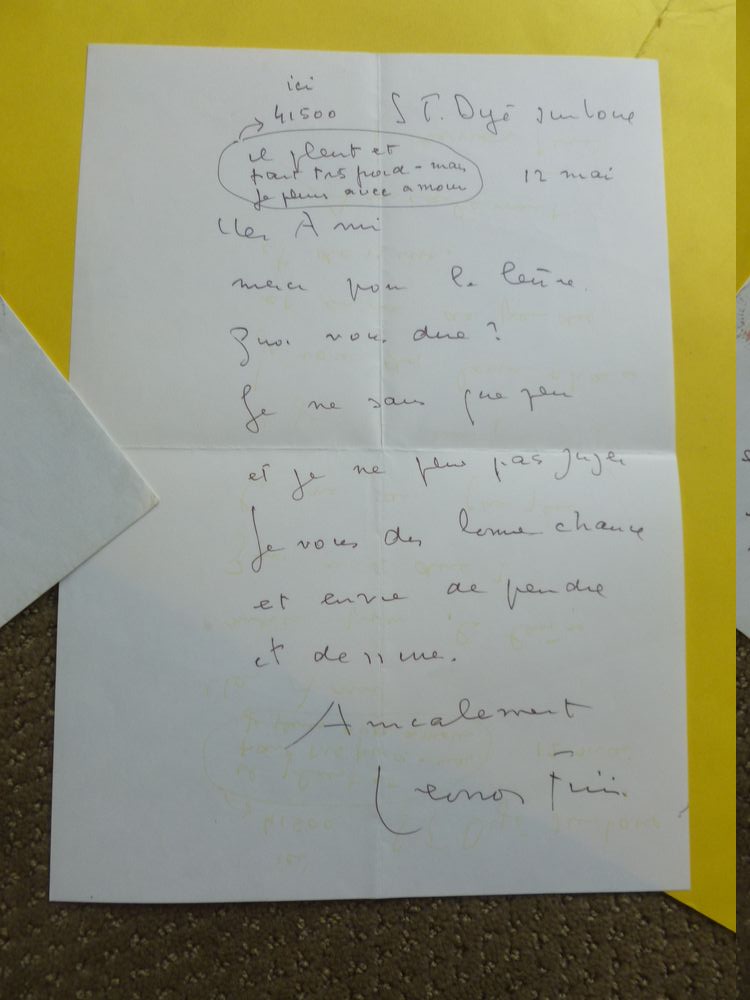 ici
41500 ST. Dyé sur Loire
il pleut et
fait très froid - mais
je peins avec amour
12 mai
Cher Ami
merci pour la lettre.
Quoi vous dire?
Je ne sais que peu
et je ne peux pas juger
Je vous dis bonne chance
et envie de peindre
et dessiner.
Amicalement
Leonor Fini